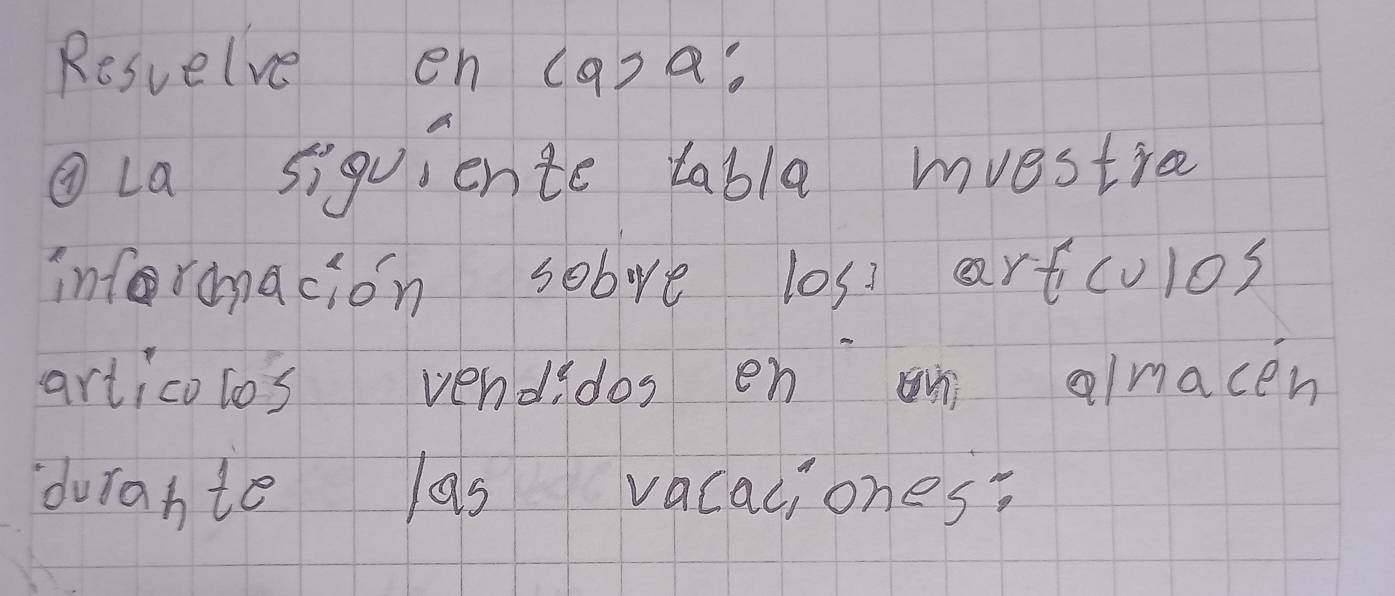 Resuelve en casa:
① La siguiente tabla muestra
información sobre los artículos
articolos vendidos en un almacén
durante las vacaciones: